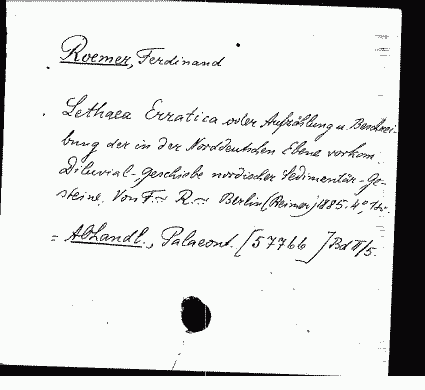 Roemer, Ferdinand
Lethaea Erratica oder Aufzählung u. Beschrei-
bung der in der Norddeutschen Ebene vorkom.
Diluvial-Geschiebe nordischer Sedimentär-Ge-
steine. Von F.~ R.~ Berlin (Reimer) 1885. 4°
= Abhandl., Palaeont. [57766] Bd II/5.